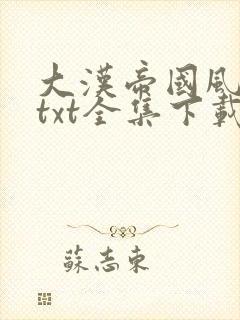 大漢帝國風
txt全集下載
蘇志東